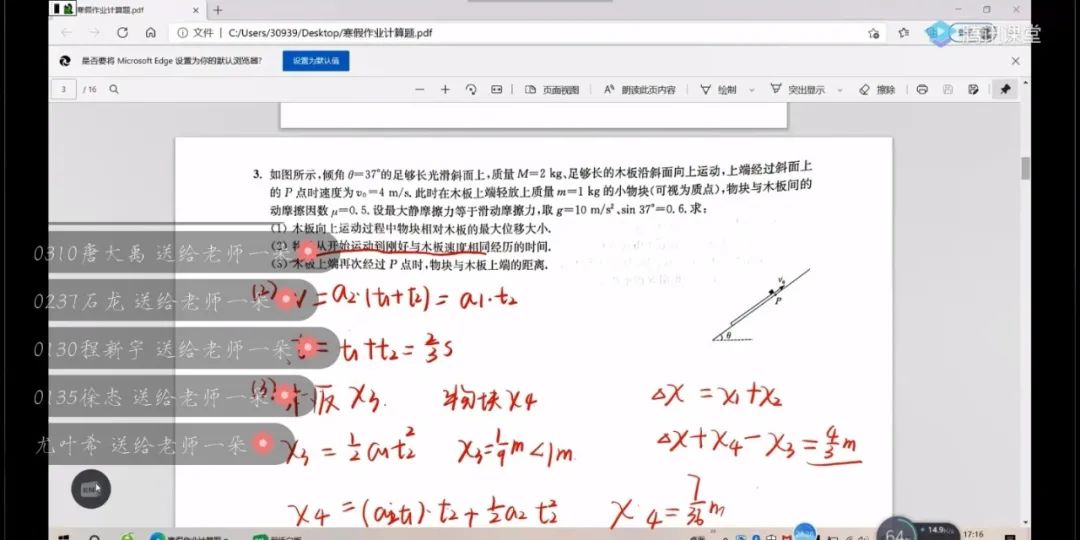 寒假作业计算题.pdf
文件 | C:/Users/30939/Desktop/寒假作业计算题.pdf
腾讯课堂
是否要将 Microsoft Edge 设置为你的默认浏览器?
设置为默认值
3 / 16
页面视图
朗读此页内容
绘制
突出显示
擦除
3. 如图所示,倾角θ=37°的足够长光滑斜面上,质量 M=2 kg、足够长的木板沿斜面向上运动,上端经过斜面上
的 P 点时速度为 v₀=4 m/s. 此时在木板上端轻放上质量 m=1 kg 的小物块(可视为质点),物块与木板间的
动摩擦因数 μ=0.5. 设最大静摩擦力等于滑动摩擦力,取 g=10 m/s²、sin 37°=0.6. 求:
(1) 木板向上运动过程中物块相对木板的最大位移大小.
(2) 物 从开始运动到刚好与木板速度相同经历的时间.
(3) 木板上端再次经过 P 点时,物块与木板上端的距离.
v₀
P
θ
0310唐大禹 送给老师一朵
0237石龙 送给老师一朵
0130程新宇 送给老师一朵
0135徐志 送给老师一朵
尤叶希 送给老师一朵
(2) V = a₂·(t₁+t₂) = a₁·t₂
= t₁+t₂ = 2/3 s
(3) 木板 x₃ 物块 x₄ △x = x₁+x₂
x₃ = 1/2 a₁t₂² x₃ = 1/9 m < 1m △x + x₄ - x₃ = 4/3 m
x₄ = (a₂t₁)·t₂ + 1/2 a₂ t₂² x₄ = 7/36 m
寒假作业计算题
14.9K/s
17:16